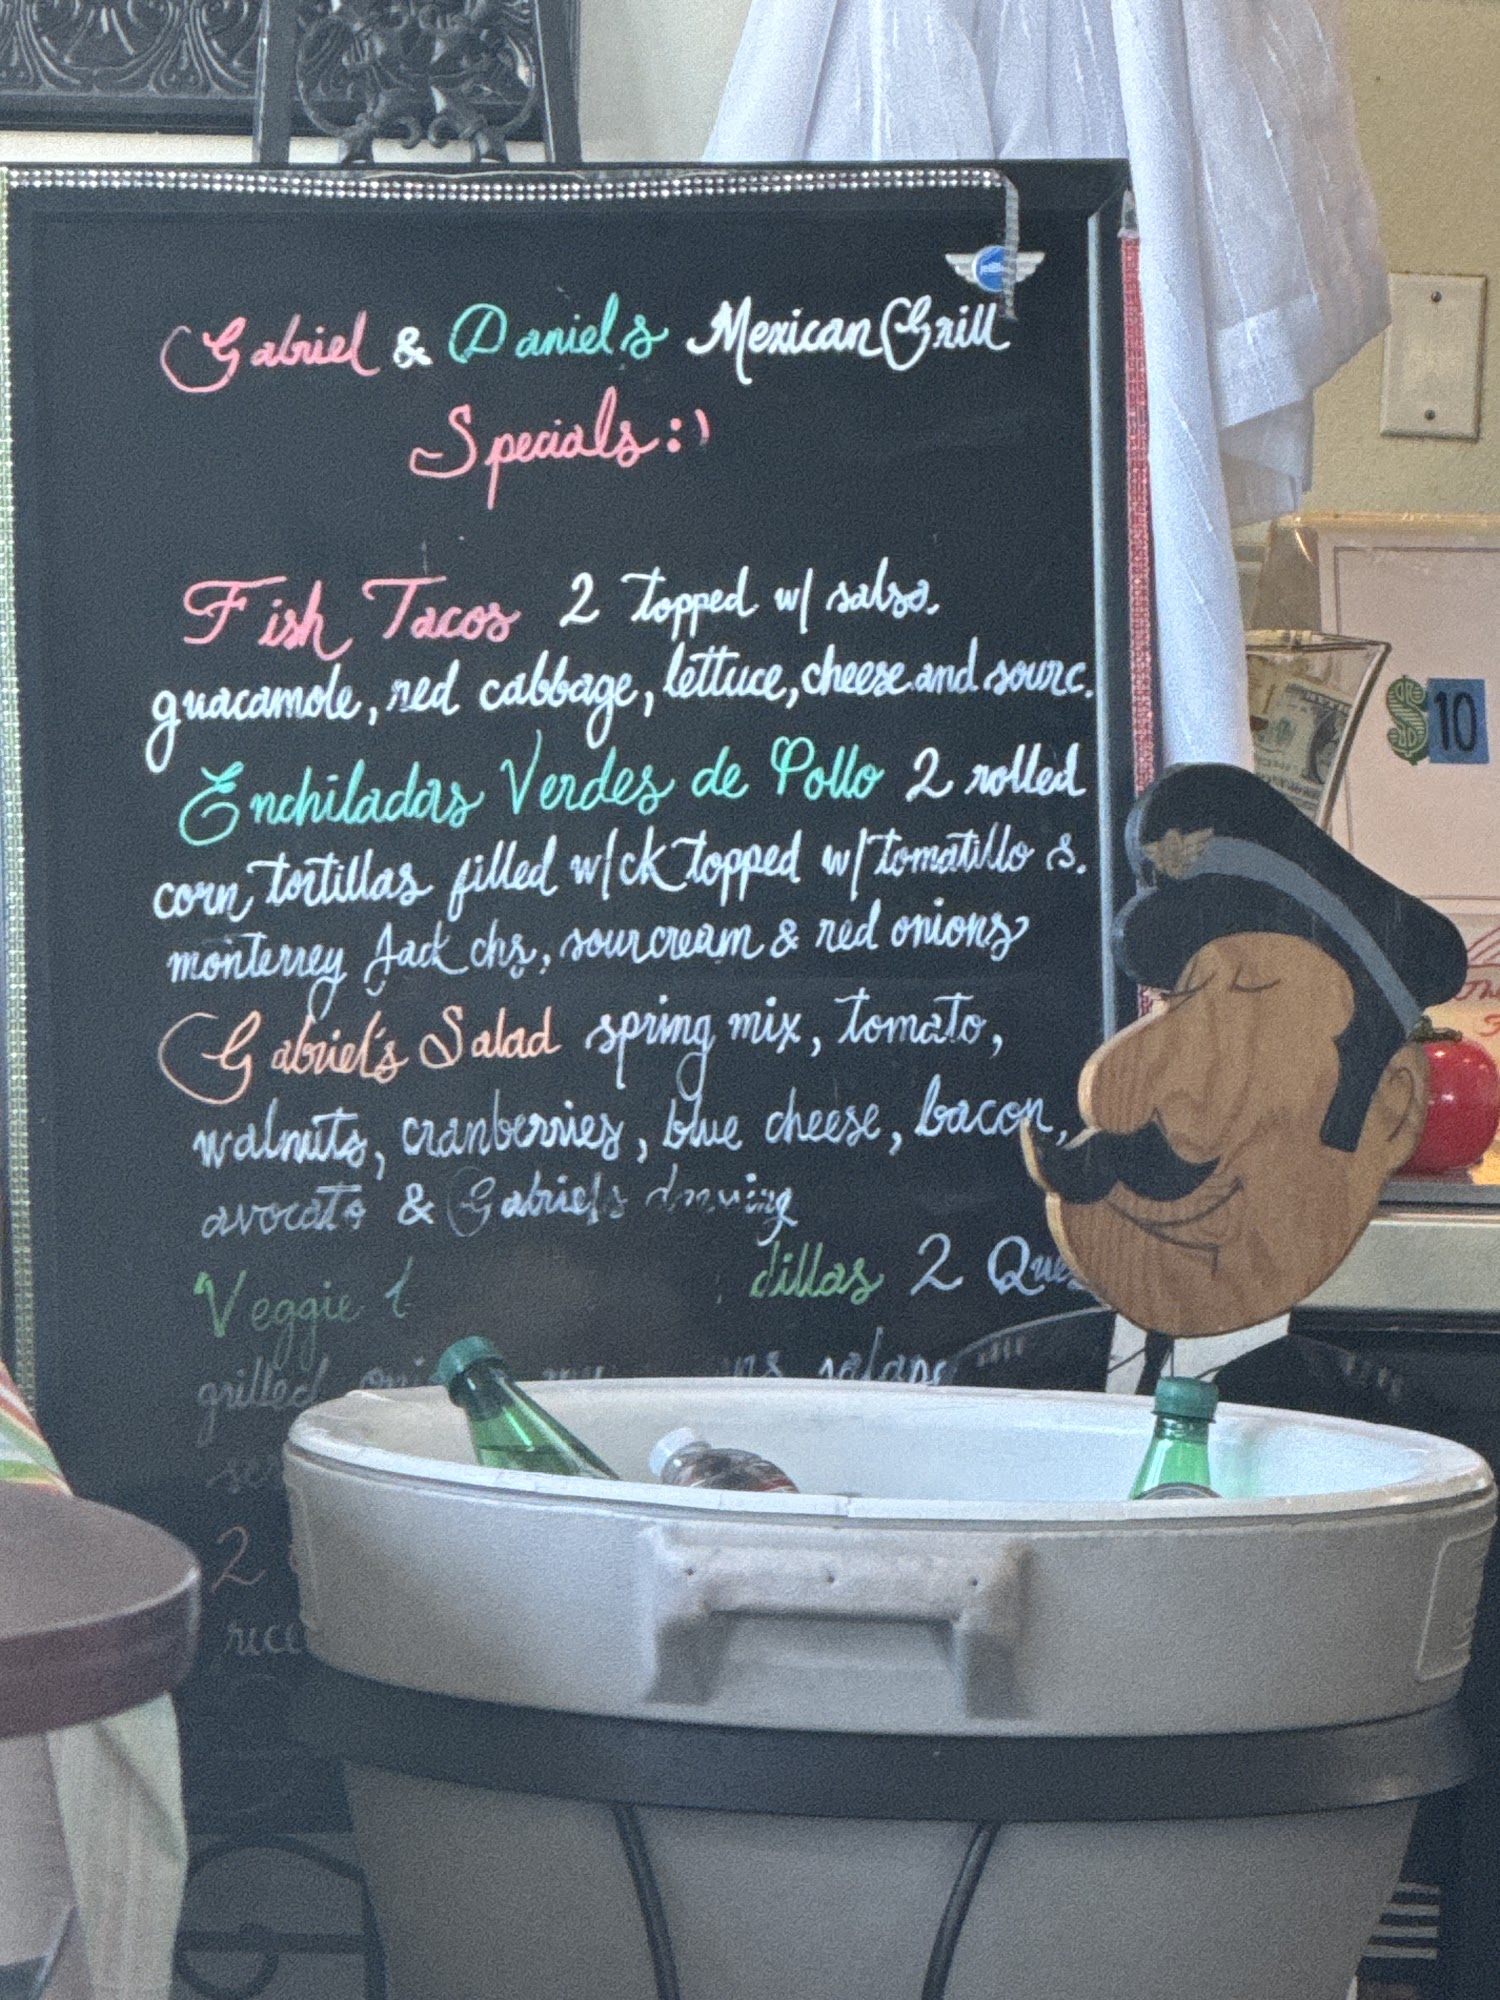 Gabriel & Daniel's Mexican Grill
Specials :)
Fish Tacos 2 topped w/ salsa.
guacamole, red cabbage, lettuce, cheese and sour c.
Enchiladas Verdes de Pollo 2 rolled
corn tortillas filled w/ ck topped w/ tomatillo s.
monterrey Jack chs, sour cream & red onions
Gabriel's Salad spring mix, tomato,
walnuts, cranberries, blue cheese, bacon,
avocato & Gabriel's dressing
Veggie dillas 2 Ques
grilled
2
rice
$10